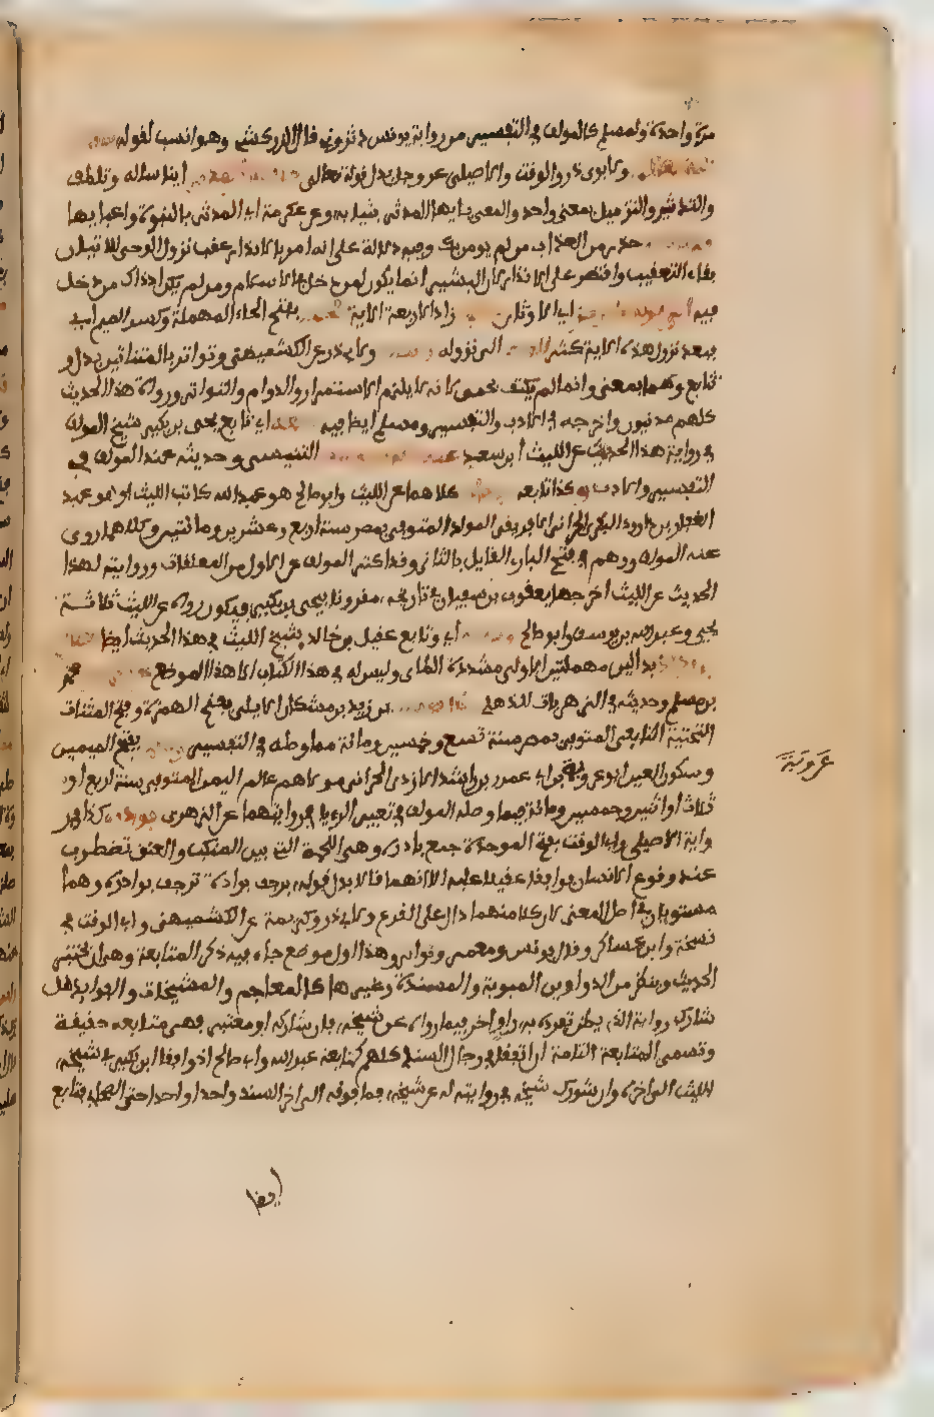 مرة واحدة ولمسلم كالمؤلف في التفسير من رواية يونس دثروني قال الزركشي وهو انسب لقوله
ولابوي ذر والوقت والاصيلي عز وجل بدل قوله تعالى ايناسا له وتلطف
والتدثير والتزميل بمعنى واحد والمعنى يا ايها المدثر بثيابه وعن عكرمة اي المدثر بالنبوة واعبائها
حذر من العذاب من لم يومن بك وفيه دلالة على انه امر بالانذار عقب نزول الوحي للاتيان
بفاء التعقيب واقتصر على الانذار لان التبشير انما يكون لمن دخل في الاسلام ولم يكن اذ ذاك من دخل
فيه اي الاوثان زاد الاربعة الاية بفتح الحاء المهملة وكسر الميم اي
بعد نزول هذه الاية كثر الى نزوله ولابي ذر عن الكشميهني وتواتر بالمثناتين بدل و
تتابع وهما بمعنى وانما لم يكتف بحمى لانه لا يلزم الاستمرار والدوام والتواتر ورواة هذا الحديث
كلهم مدنيون واخرجه في الادب والتفسير ومسلم ايضا فيه اي تابع يحيى بن بكير شيخ المؤلف
في رواية هذا الحديث عن الليث ابن سعد التنيسي وحديثه عند المؤلف في
التفسير والادب كذا تابعه كلاهما عن الليث وابو صالح هو عبد الله كاتب الليث او هو عبد
الغفار بن داود البكري الحراني الافريقي المولد المتوفى بمصر سنة اربع وعشرين ومائتين وكلاهما روى
عنه المؤلف ووهم في فتح الباري القايل بالثاني وقد اكثر المؤلف عن الاول من المعلقات وروايته لهذا
الحديث عن الليث اخرجها يعقوب بن سفيان في تاريخه مقرونا بيحيى بن بكير فيكون رواه عن الليث ثلاثة
يحيى وعبد الله بن يوسف وابو صالح اي وتابع عقيل بن خالد شيخ الليث في هذا الحديث ايضا
بدالين مهملتين الاولى مشددة الطاي وليس له في هذا الكتاب الا هذا الموضع
بن مسلم وحديثه في الزهريات للذهلي بن يزيد بن مشكان الايلي بفتح الهمزة وفتح المثناة
التحتية التابعي المتوفى بمصر سنة تسع وخمسين ومائة مما وصله في التفسير بفتح الميمين
وسكون العين ابو عروة بن ابي عمرو بن راشد الازدي الحراني مولاهم عالم اليمن المتوفى سنة اربع او
ثلاث او اثنين وخمسين ومائة فيما وصله المؤلف في تعبير الرءيا في روايتهما عن الزهري بوادره كذا في ر
واية الاصيلي وابي الوقت بفتح الموحدة جمع بادرة وهي اللحمة التي بين المنكب والعنق تضطرب
عند فزع الانسان فوافقا عقيلا عليه الا انهما قالا بدل قوله يرجف فواده ترجف بوادره وهما
مستويان في اصل المعنى لان كلا منهما دال على الفزع ولابي ذر وكريمة عن الكشميهني وابي الوقت في
نسخة وابن عساكر وقال يونس ومعمر بوادره وهذا اول موضع جاء فيه ذكر المتابعة وهي ان تختبر
الحديث وينظر من الدواوين المبوبة والمسندة وغيرها كالمعاجم والمشيخات والفوايد هل
شارك رواية الذي يظن تفرده به راو اخر فيما رواه عن شيخه فان شاركه راو معتبر فهي متابعة حقيقة
وتسمى المتابعة التامة ان اتفقا في رجال السند كلهم كمتابعة عبد الله وابي صالح اذ وافقا ابن بكير في شيخه
الليث الى اخره وان شورك شيخه في روايته له عن شيخه فما فوقه الى اخر السند واحدا واحدا حتى الصحابي فتابع